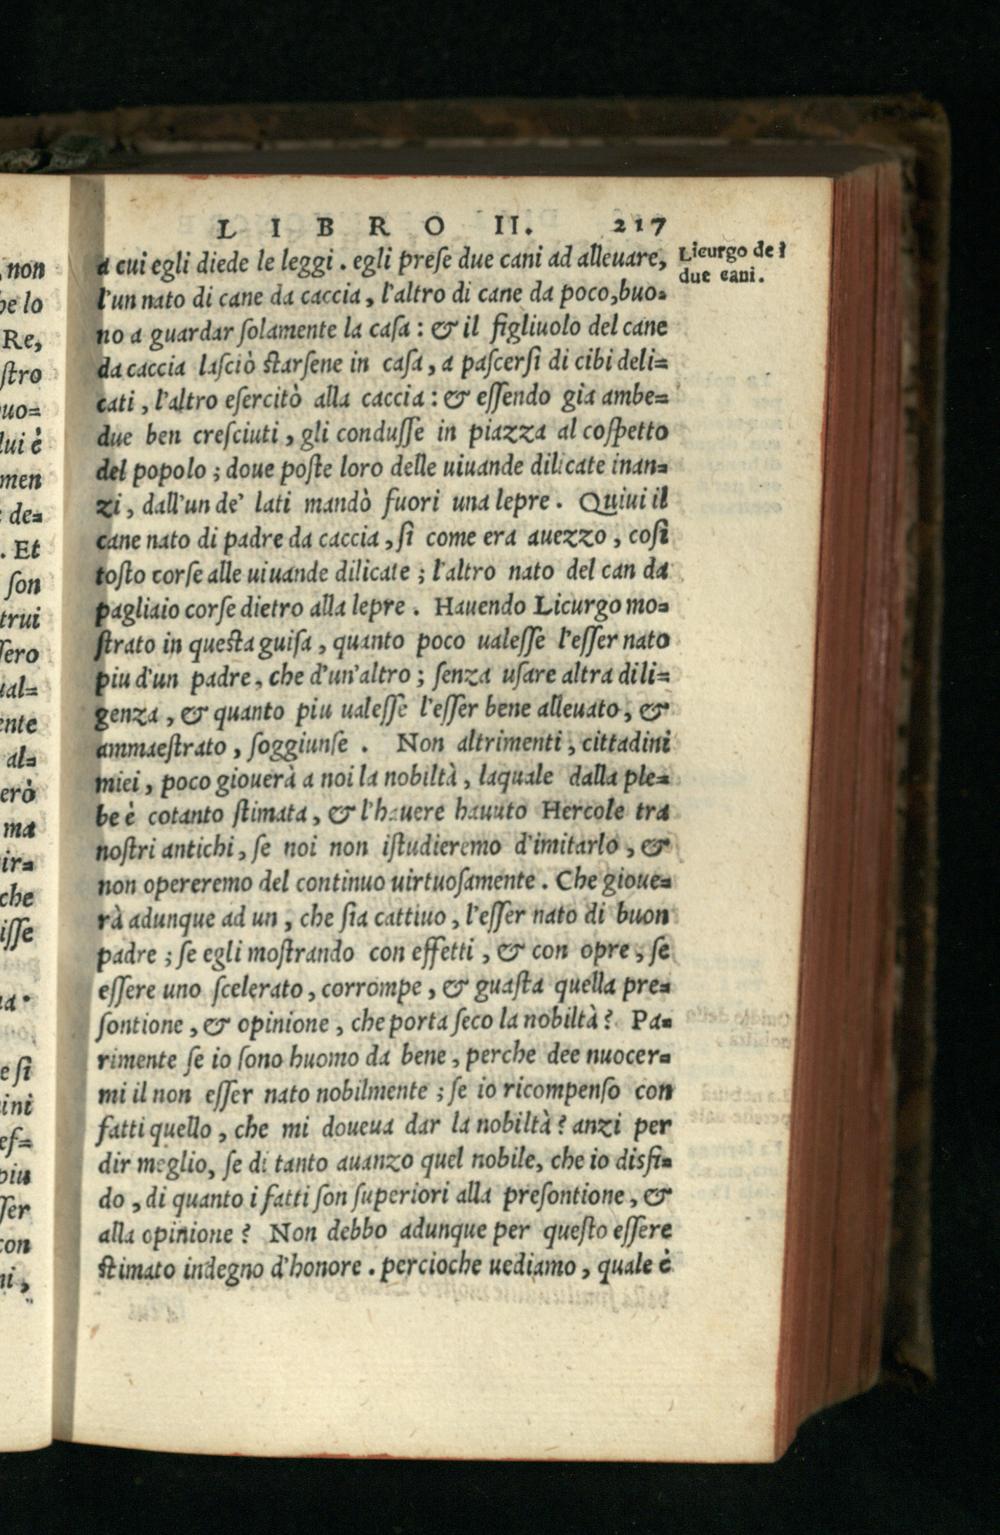 LIBRO II. 217
a cui egli diede le leggi. egli prese due cani ad alleuare,
l'un nato di cane da caccia, l'altro di cane da poco, buo-
no a guardar solamente la casa: & il figliuolo del cane
da caccia lasciò starsene in casa, a pascersi di cibi deli-
cati, l'altro esercitò alla caccia: & essendo gia ambe-
due ben cresciuti, gli condusse in piazza al cospetto
del popolo; doue poste loro delle uiuande dilicate inan-
zi, dall'un de' lati mandò fuori una lepre. Quiui il
cane nato di padre da caccia, si come era auezzo, così
tosto corse alle uiuande dilicate; l'altro nato del can da
pagliaio corse dietro alla lepre. Hauendo Licurgo mo-
strato in questa guisa, quanto poco ualesse l'esser nato
piu d'un padre, che d'un'altro; senza usare altra dili-
genza, & quanto piu ualesse l'esser bene alleuato, &
ammaestrato, soggiunse. Non altrimenti, cittadini
miei, poco giouerà a noi la nobiltà, laquale dalla ple-
be è cotanto stimata, & l'hauere hauuto Hercole tra
nostri antichi, se noi non istudieremo d'imitarlo, &
non opereremo del continuo uirtuosamente. Che gioue-
rà adunque ad un, che sia cattiuo, l'esser nato di buon
padre; se egli mostrando con effetti, & con opre, se
essere uno scelerato, corrompe, & guasta quella pre-
sontione, & opinione, che porta seco la nobiltà? Pa-
rimente se io sono huomo da bene, perche dee nuocer-
mi il non esser nato nobilmente; se io ricompenso con
fatti quello, che mi doueua dar la nobiltà? anzi per
dir meglio, se di tanto auanzo quel nobile, che io disfi-
do, di quanto i fatti son superiori alla presontione, &
alla opinione? Non debbo adunque per questo essere
stimato indegno d'honore. percioche uediamo, quale è
Licurgo de i
due cani.
non
he lo
Re,
stro
uo-
lui è
men
de-
. Et
son
trui
sero
ual-
ente
al-
erò
ma
ir-
che
isse
ua.
e si
ini
ef-
piu
sser
con
ni,